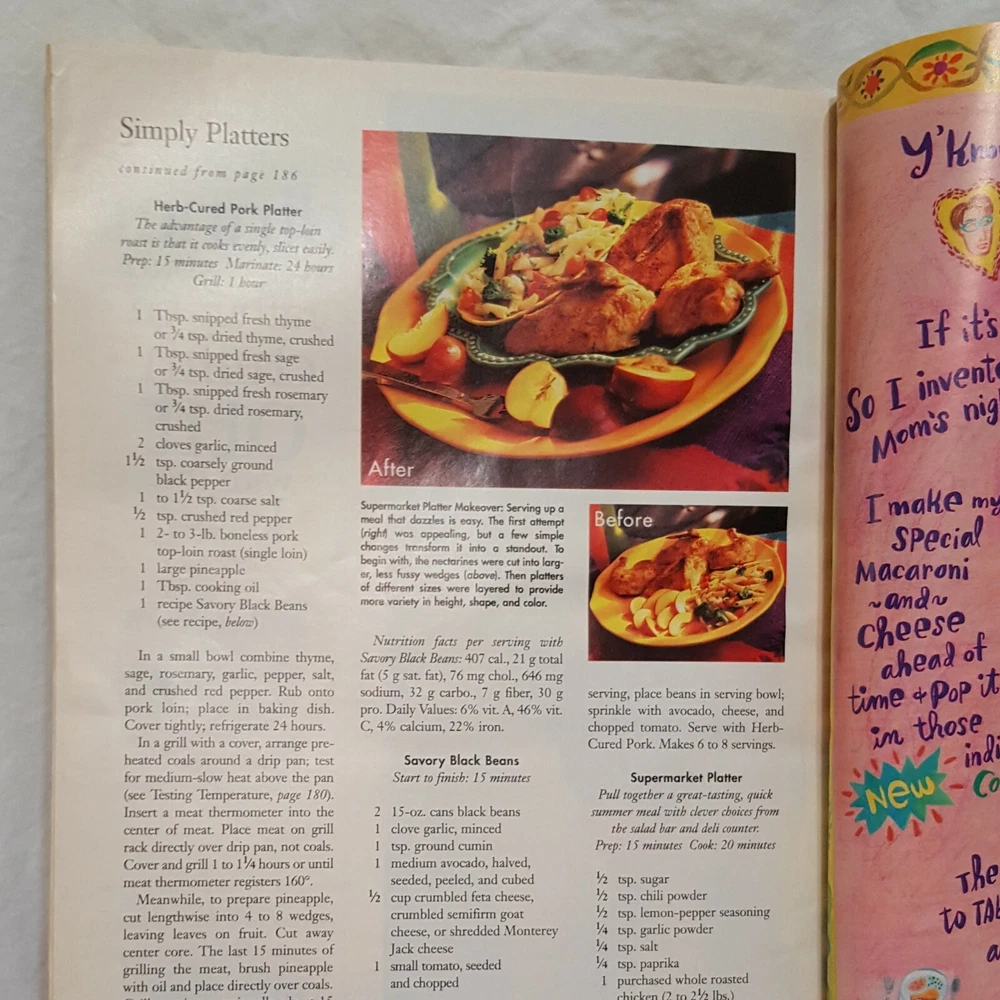 Simply Platters
continued from page 186
Herb-Cured Pork Platter
The advantage of a single top-loin
roast is that it cooks evenly, slices easily.
Prep: 15 minutes Marinate: 24 hours
Grill: 1 hour
1 Tbsp. snipped fresh thyme
or ¾ tsp. dried thyme, crushed
1 Tbsp. snipped fresh sage
or ¾ tsp. dried sage, crushed
1 Tbsp. snipped fresh rosemary
or ¾ tsp. dried rosemary,
crushed
2 cloves garlic, minced
1½ tsp. coarsely ground
black pepper
1 to 1½ tsp. coarse salt
½ tsp. crushed red pepper
1 2- to 3-lb. boneless pork
top-loin roast (single loin)
1 large pineapple
1 Tbsp. cooking oil
1 recipe Savory Black Beans
(see recipe, below)
In a small bowl combine thyme,
sage, rosemary, garlic, pepper, salt,
and crushed red pepper. Rub onto
pork loin; place in baking dish.
Cover tightly; refrigerate 24 hours.
In a grill with a cover, arrange pre-
heated coals around a drip pan; test
for medium-slow heat above the pan
(see Testing Temperature, page 180).
Insert a meat thermometer into the
center of meat. Place meat on grill
rack directly over drip pan, not coals.
Cover and grill 1 to 1¼ hours or until
meat thermometer registers 160°.
Meanwhile, to prepare pineapple,
cut lengthwise into 4 to 8 wedges,
leaving leaves on fruit. Cut away
center core. The last 15 minutes of
grilling the meat, brush pineapple
with oil and place directly over coals.
After
Supermarket Platter Makeover: Serving up a
meal that dazzles is easy. The first attempt
(right) was appealing, but a few simple
changes transform it into a standout. To
begin with, the nectarines were cut into larg-
er, less fussy wedges (above). Then platters
of different sizes were layered to provide
more variety in height, shape, and color.
Before
Nutrition facts per serving with
Savory Black Beans: 407 cal., 21 g total
fat (5 g sat. fat), 76 mg chol., 646 mg
sodium, 32 g carbo., 7 g fiber, 30 g
pro. Daily Values: 6% vit. A, 46% vit.
C, 4% calcium, 22% iron.
Savory Black Beans
Start to finish: 15 minutes
2 15-oz. cans black beans
1 clove garlic, minced
1 tsp. ground cumin
1 medium avocado, halved,
seeded, peeled, and cubed
½ cup crumbled feta cheese,
crumbled semifirm goat
cheese, or shredded Monterey
Jack cheese
1 small tomato, seeded
and chopped
serving, place beans in serving bowl;
sprinkle with avocado, cheese, and
chopped tomato. Serve with Herb-
Cured Pork. Makes 6 to 8 servings.
Supermarket Platter
Pull together a great-tasting, quick
summer meal with clever choices from
the salad bar and deli counter.
Prep: 15 minutes Cook: 20 minutes
½ tsp. sugar
½ tsp. chili powder
½ tsp. lemon-pepper seasoning
¼ tsp. garlic powder
¼ tsp. salt
¼ tsp. paprika
1 purchased whole roasted
chicken (2 to 2½ lbs.)
Y'Kno
If it's
So I invente
Mom's nig
I make my
special
Macaroni
~and~
Cheese
ahead of
time + Pop it
in those
indi
New
Co
The
to TA
a